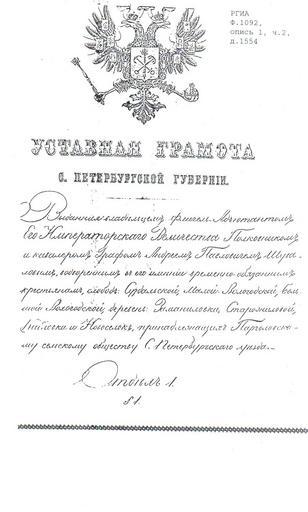 РГИА
Ф.1092,
опись 1, ч.2,
д.1554
УСТАВНАЯ ГРАМОТА
С. ПЕТЕРБУРГСКОЙ ГУБЕРНІИ.
Выданная владельцемъ Флигель Адъютантомъ
Его Императорскаго Величества Полковникомъ
и кавалеромъ Графомъ Андреемъ Павловичемъ Шува-
ловымъ, водвореннымъ въ его имѣніи временно обязаннымъ
крестьянамъ, слободъ: Суздальской, Малой Вологодской, Боль
шой Вологодской, деревень: Старожиловой,
и Новоселокъ, принадлежащихъ Парголовско-
му сельскому обществу С. Петербургскаго уѣзда.
Отдѣлъ 1.
§ 1.